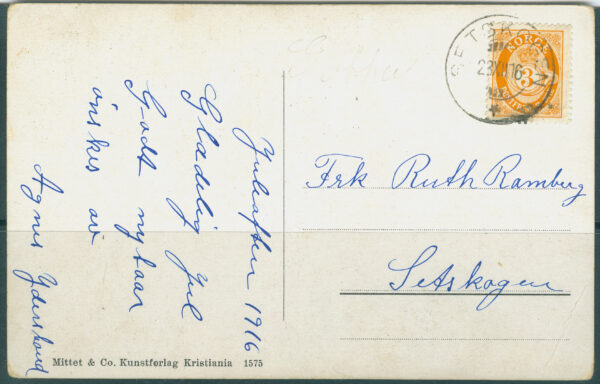 SETSKOGEN
23 XII 16
NORGE
3
Juleaften 1916
Glædelig Jul
Godt nytaar
önskes av
Agnes
Frk Ruth Ramberg
Setskogen
Mittet & Co. Kunstforlag Kristiania 1575